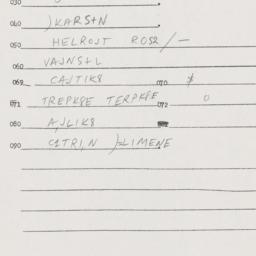 030
040 )KARS+N
050 HELROJT ROS2/—
060 VAJNS+L
069 CAJTIK8 070 $
071 TREPK8E TERPK8E 072 0
080 AJLIK8
090 C1TRI,N )=LIMENE